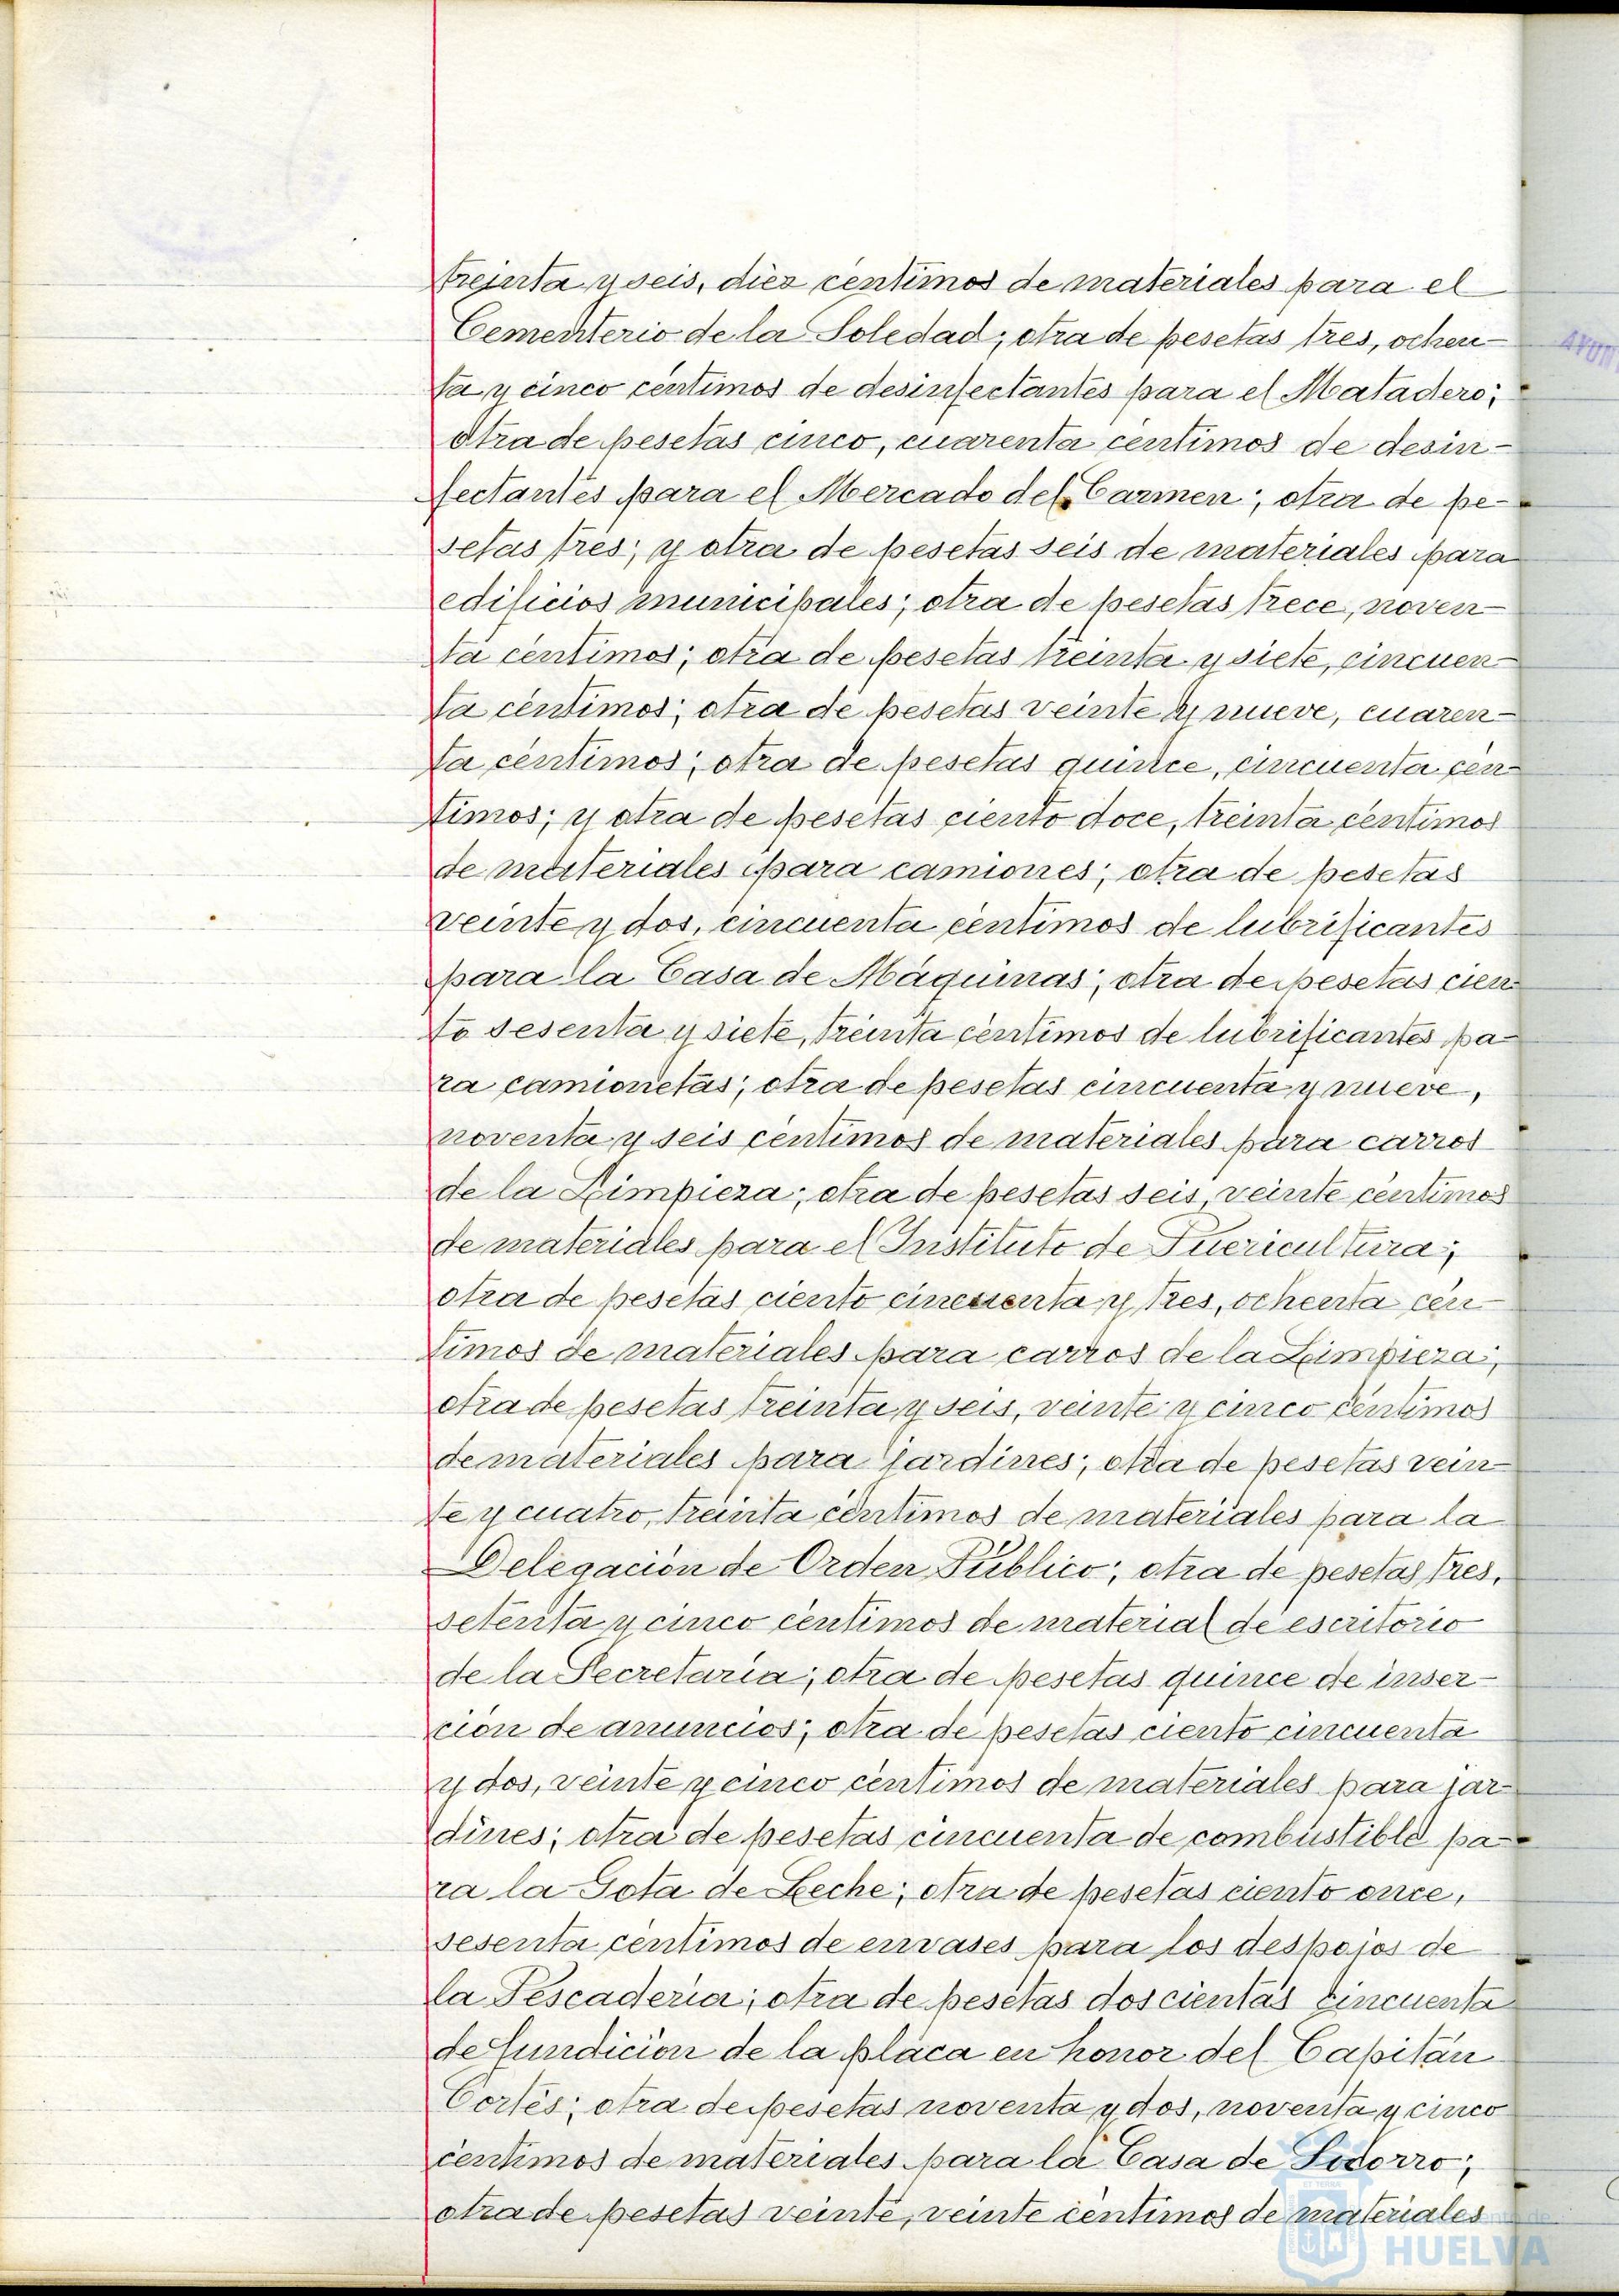 treinta y seis, diez centimos de materiales para el
Cementerio de la Soledad; otra de pesetas tres, ochen-
ta y cinco centimos de desinfectantes para el Matadero;
otra de pesetas cinco, cuarenta centimos de desin-
fectantes para el Mercado del Carmen; otra de pe-
setas tres; y otra de pesetas seis de materiales para
edificios municipales; otra de pesetas trece, noven-
ta centimos; otra de pesetas treinta y siete, cincuen-
ta centimos; otra de pesetas veinte y nueve, cuaren-
ta centimos; otra de pesetas quince, cincuenta cen-
timos; y otra de pesetas ciento doce, treinta centimos
de materiales para camiones; otra de pesetas
veinte y dos, cincuenta centimos de lubrificantes
para la Casa de Máquinas; otra de pesetas cien-
to sesenta y siete, treinta centimos de lubrificantes pa-
ra camionetas; otra de pesetas cincuenta y nueve,
noventa y seis centimos de materiales para carros
de la Limpieza; otra de pesetas seis, veinte centimos
de materiales para el Instituto de Puericultura;
otra de pesetas ciento cincuenta y tres, ochenta cen-
timos de materiales para carros de la Limpieza;
otra de pesetas treinta y seis, veinte y cinco centimos
de materiales para jardines; otra de pesetas vein-
te y cuatro, treinta centimos de materiales para la
Delegación de Orden Público; otra de pesetas tres,
setenta y cinco centimos de material de escritorio
de la Secretaría; otra de pesetas quince de inser-
ción de anuncios; otra de pesetas ciento cincuenta
y dos, veinte y cinco centimos de materiales para jar-
dines; otra de pesetas cincuenta de combustible pa-
ra la Gota de Leche; otra de pesetas ciento once,
sesenta centimos de envases para los despojos de
la Pescadería; otra de pesetas doscientas cincuenta
de fundición de la placa en honor del Capitán
Cortés; otra de pesetas noventa y dos, noventa y cinco
centimos de materiales para la Casa de Socorro;
otra de pesetas veinte, veinte centimos de materiales
HUELVA